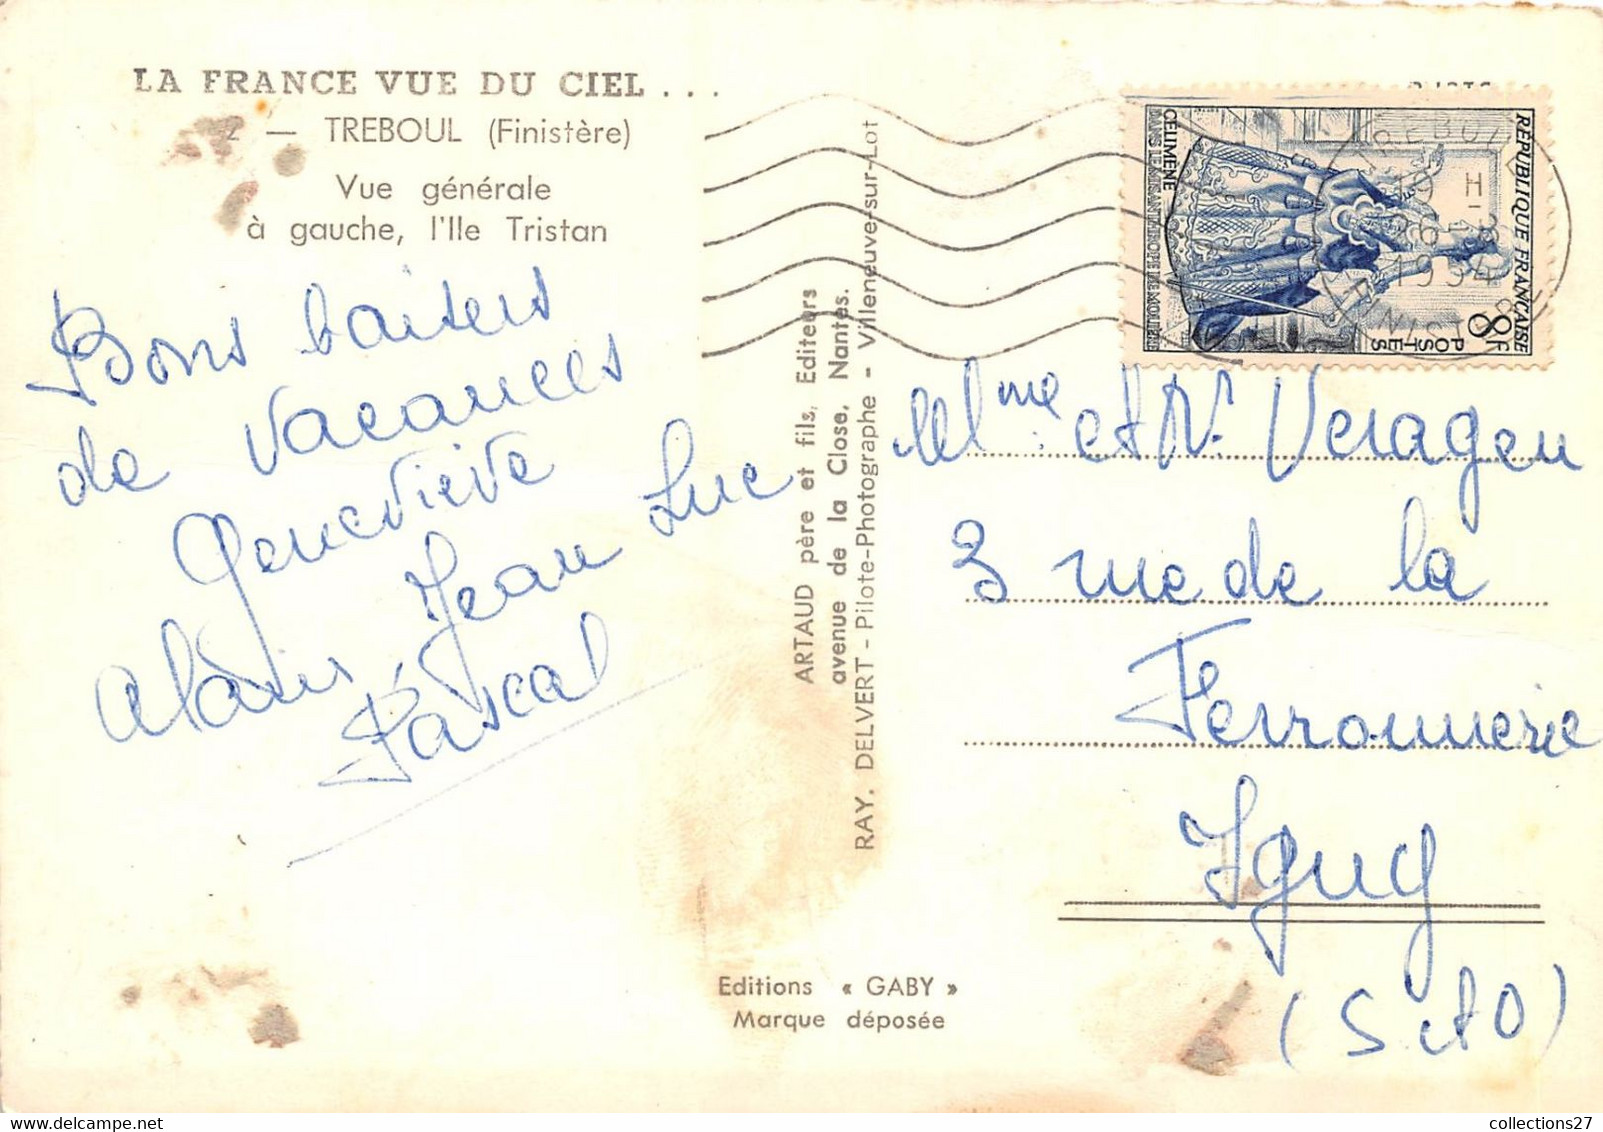 LA FRANCE VUE DU CIEL . . .
2 — TREBOUL (Finistère)
Vue générale
à gauche, l'Ile Tristan
Bons baisers
de vacances
Geneviève
Jean Luc
Alain
Pascal
ARTAUD père et fils, Editeurs
avenue de la Close, Nantes.
RAY. DELVERT - Pilote-Photographe - Villeneuve-sur-Lot
Editions « GABY »
Marque déposée
RÉPUBLIQUE FRANÇAISE
8F
POSTES
CÉLIMÈNE
DANS LE MISANTHROPE DE MOLIÈRE
TREBOUL
19 H
1954
FINISTERE
Mme et Mr. Veragen
3 rue de la
Ferronnerie
Igny
(S et O)
collections27